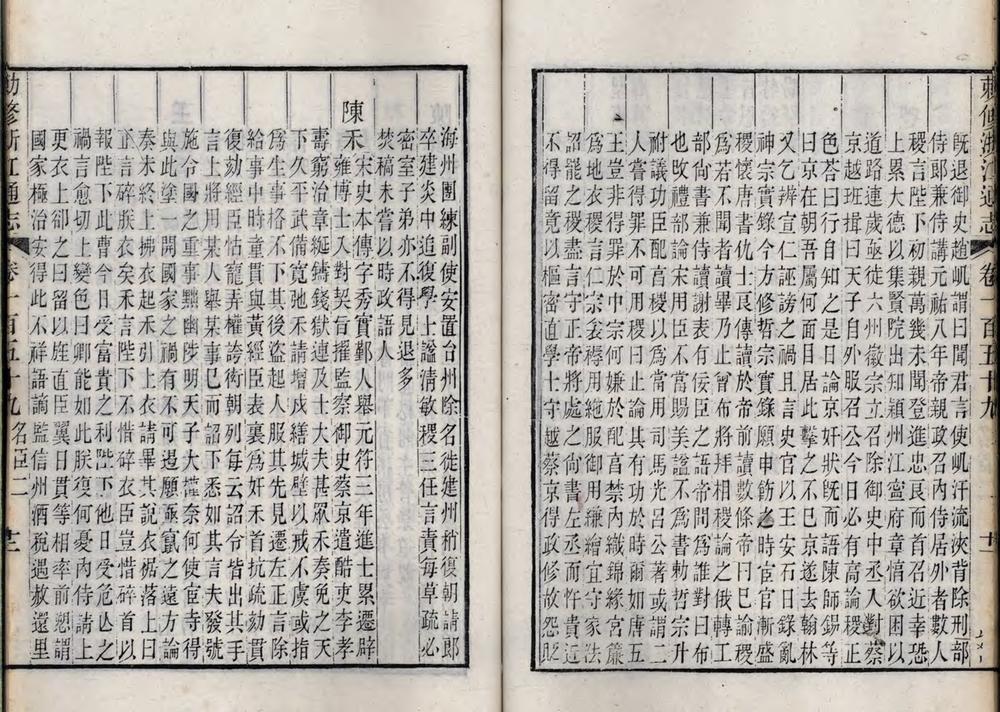 敕修浙江通志 卷一百五十九
既退御史趙屼謂曰聞君言使屼汗流浹背除刑部
侍郎兼侍講元祐八年帝親政召內侍居外者數人
稷言陛下初親萬幾未聞登進忠良而首召近幸恐
上累大德以集賢院出知潁州江寧府章惇欲困以
道路連歲亟徙六州徽宗立召除御史中丞入對蔡
京越班揖曰天子自外服召公今日必有高論稷正
色荅曰行自知之是日論京奸狀既而語陳師錫等
曰京在朝吾屬何面目居此擊之不已京遂去翰林
又乞辨宣仁誣謗之禍且言史官以王安石日錄亂
神宗實錄今方修哲宗實錄願申飭之時宦官漸盛
稷懷唐書仇士良傳讀於帝前讀數條帝曰已諭稷
爲若不聞者讀畢乃止曾布將拜相稷論之俄轉工
部尚書兼侍讀謝表有佞臣之語帝問爲誰對曰布
也改禮部論宋用臣不當賜美謚不爲書勅哲宗升
祔議功臣配享稷以爲當用司馬光呂公著或謂二
人嘗得罪不可用稷曰止論其有功於時爾如唐五
王豈非得罪於中宗何嫌於配享禁內織錦緣宮簾
爲地衣稷言仁宗衾褥用絁服御用縑繒宜守家法
詔罷之稷盡言守正帝將處之尚書左丞而忤貴近
不得留竟以樞密直學士守越蔡京得政修故怨貶
海州團練副使安置台州除名徙建州稍復朝請郎
卒建炎中追復學士謚淸敏稷三任言責每草疏必
密室子弟亦不得見退多
焚稿未嘗以時政語人
陳禾 宋史本傳字秀實鄞人舉元符三年進士累遷辟
雍博士入對契旨擢監察御史蔡京遣酷吏李孝
壽窮治章綖鑄錢獄連及士大夫甚衆禾奏免之天
下久平武備寬弛禾請增戍繕城壁以戒不虞或指
爲生事格不下其後盜起人服其先見遷左正言除
給事中時童貫與黃經臣表裏爲奸禾首抗疏劾貫
復劾經臣怙寵弄權誇衒朝列每云詔令皆出其手
言上將用某人舉某事已而詔下悉如其言夫發號
施令國之重事黜幽陟明天子大權奈何使宦寺得
與此塗一開國家之禍有不可遏願亟竄之遠方論
奏未終上拂衣起禾引上衣請畢其說衣裾落上曰
正言碎朕衣矣禾言陛下不惜碎衣臣豈惜碎首以
報陛下此曹今日受富貴之利陛下他日受危亾之
禍言愈切上變色曰卿能如此朕復何憂內侍請上
更衣上卻之曰留以旌直臣翼日貫等相率前愬謂
國家極治安得此不祥語謫監信州酒稅遇赦還里
敕修浙江通志 卷一百五十九 名臣二